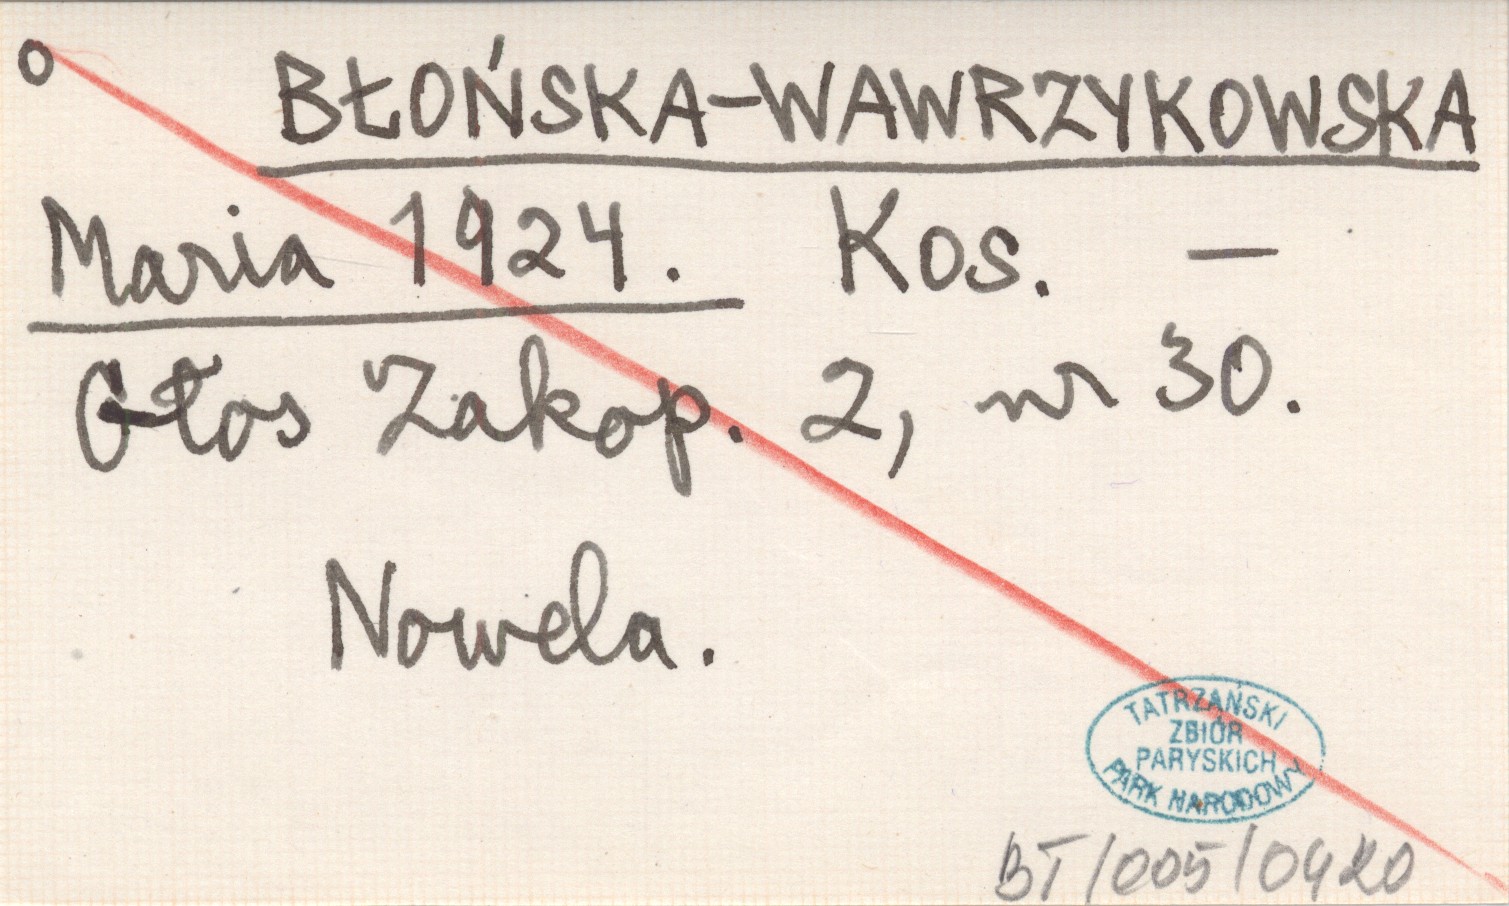 o BŁOŃSKA-WAWRZYKOWSKA
Maria 1924. Kos. —
Głos Zakop. 2, nr 30.
Nowela.
TATRZAŃSKI
ZBIÓR
PARYSKICH
PARK NARODOWY
BT/005/0420